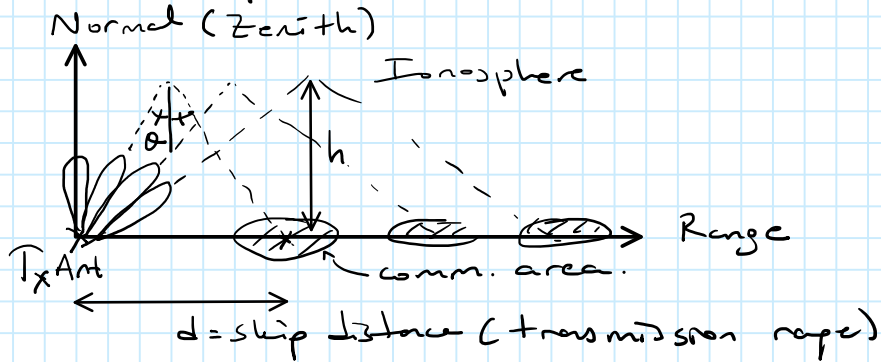 Normal (Zenith)
Ionosphere
θ
h
Range
Tx Ant
comm. area.
d = skip distance (transmission range)